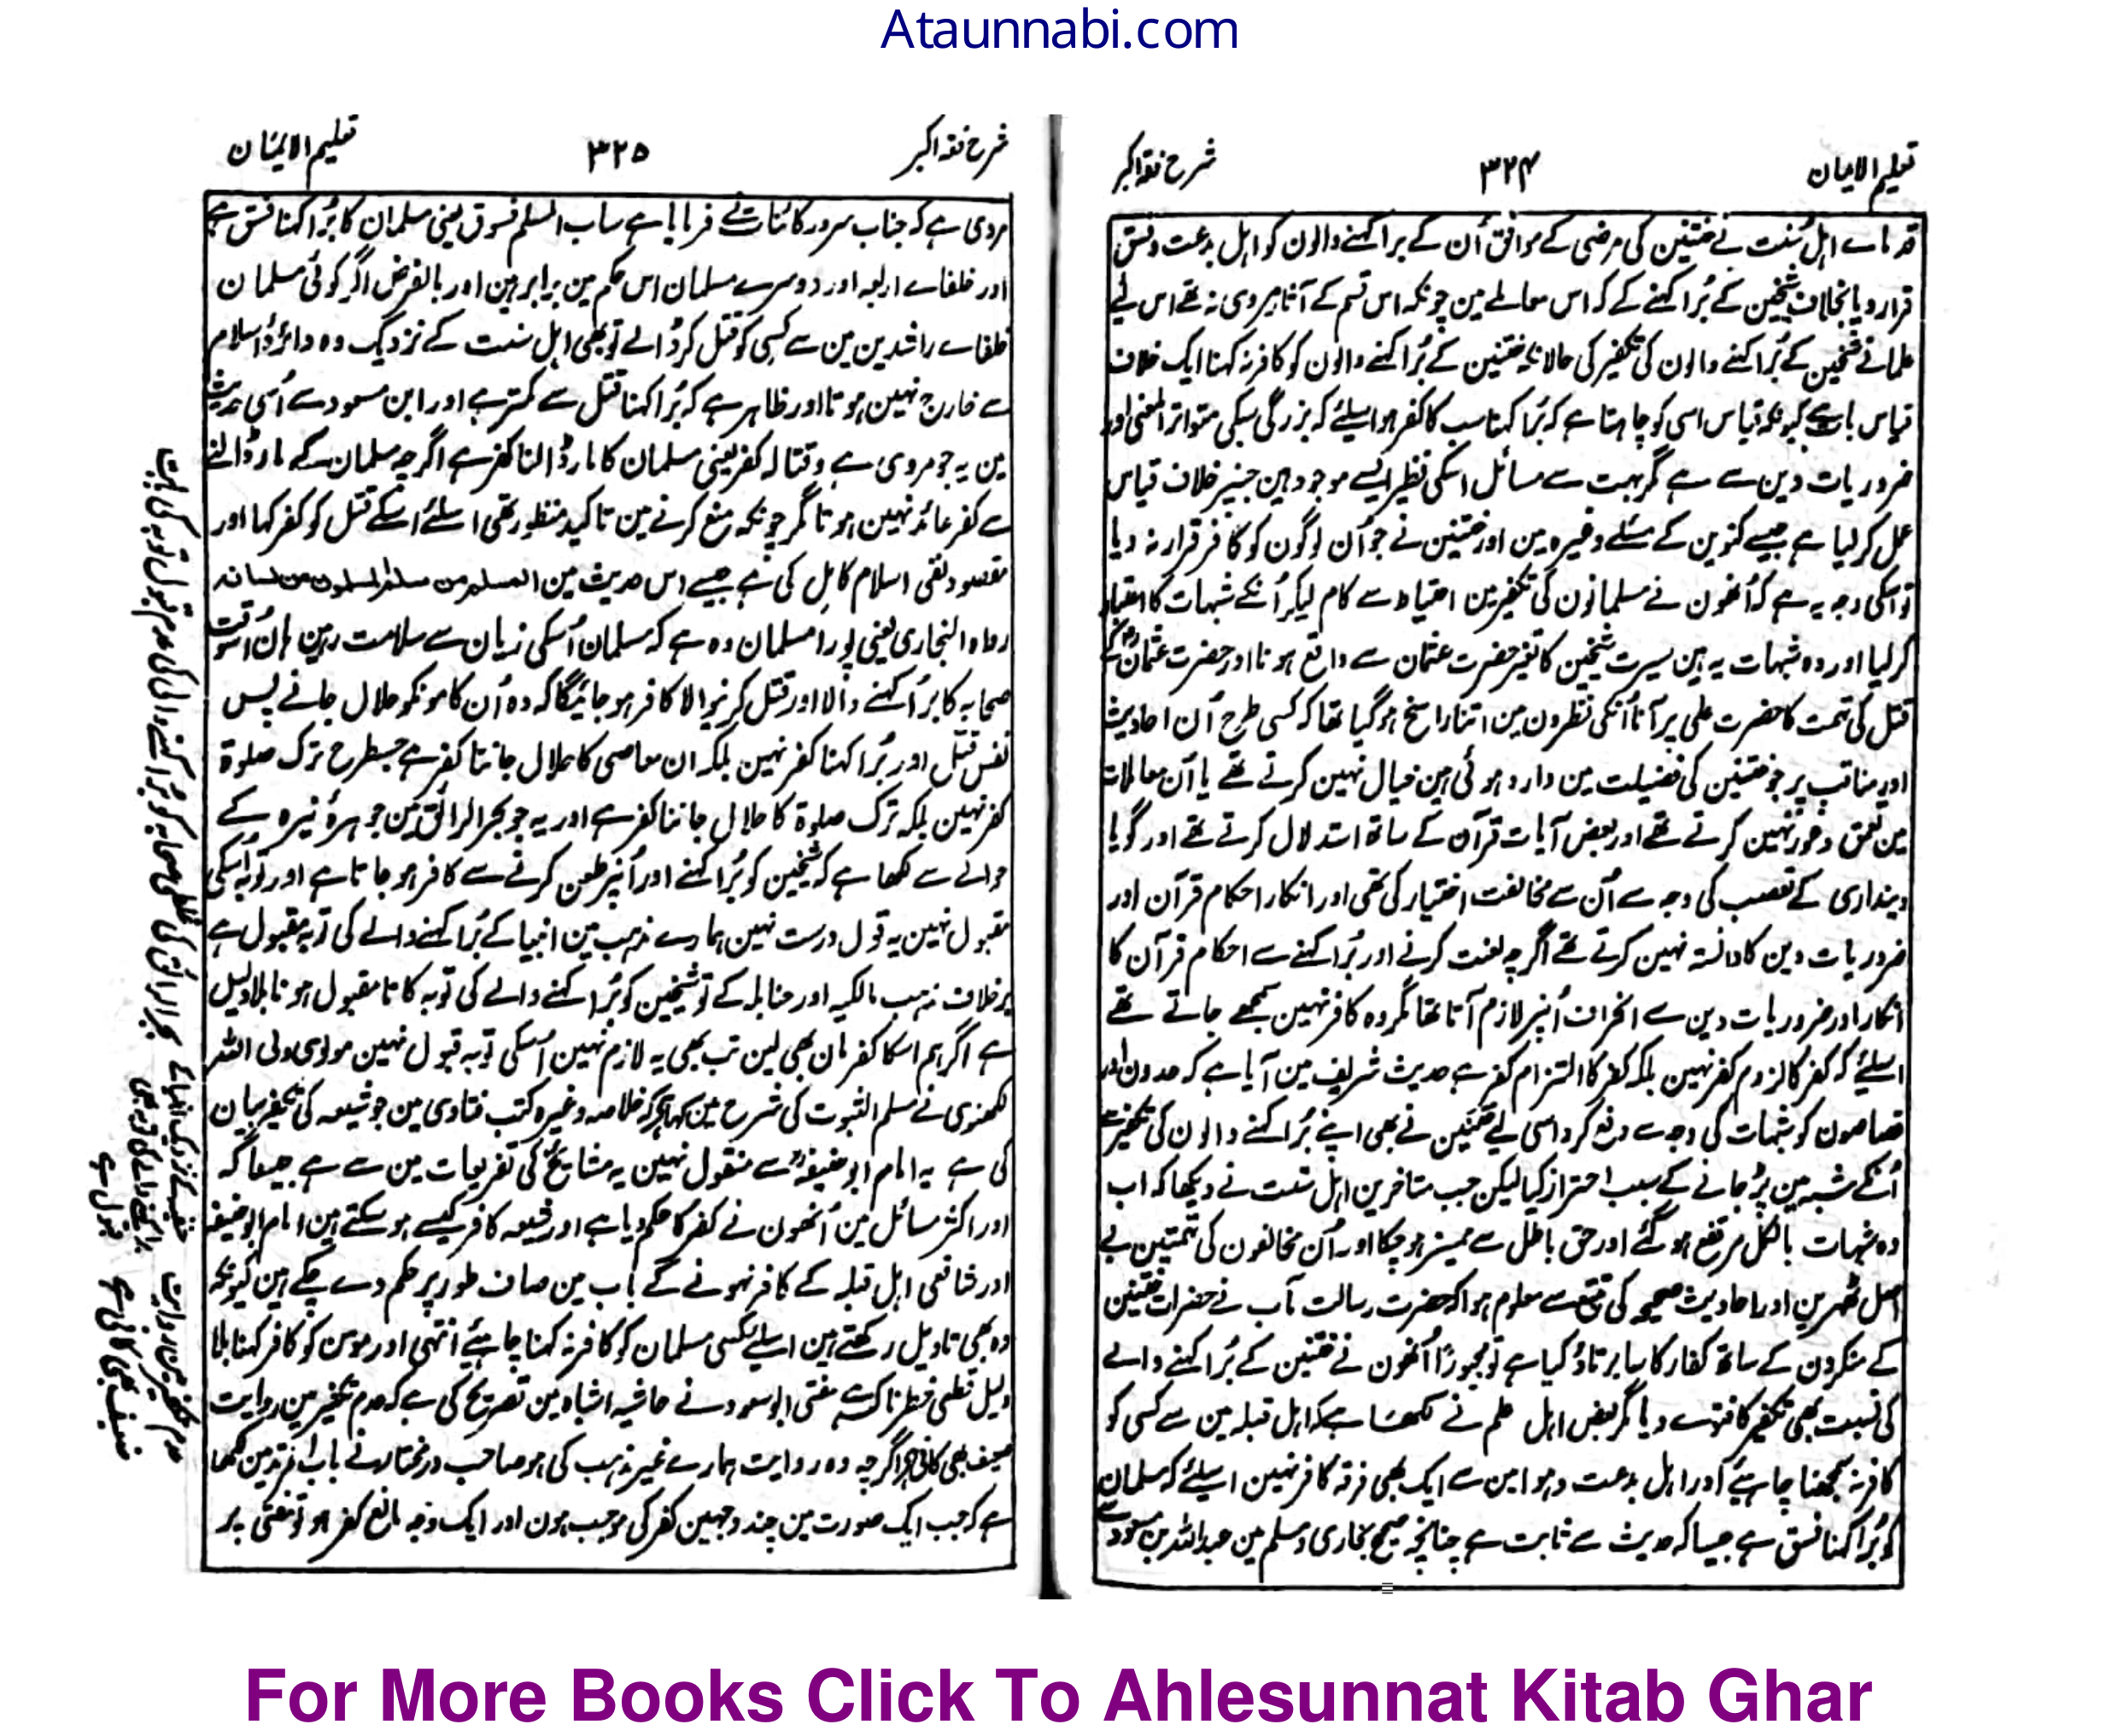 Ataunnabi.com
تعلیم الایمان ۳۲۴ شرح فقہ اکبر
قدماے اہل سُنت نے ختنین کی مرضی کے موافق اُن کے برا کہنے والون کو اہل بدعت وفسق
قرار دیا بخلاف شیخین کے بُرا کہنے کے کہ اس معاملے مین چونکہ اس قسم کے آثار مروی نہ تھے اس لیے
علمانے شیخین کے بُرا کہنے والون کی تکفیر کی حالانکہ ختنین کے بُرا کہنے والون کو کافر نہ کہنا ایک خلاف
قیاس بات ہے کیونکہ قیاس اسی کو چاہتا ہے کہ بُرا کہنا سب کا کفر ہو اسلیے کہ بزرگی سبکی متواتر المعنی اور
ضروریات دین سے ہے مگر بہت سے مسائل اسکی نظیر ایسے موجود ہین جنپر خلاف قیاس
عمل کرلیا ہے جیسے کنوین کے مسئلے وغیرہ مین اور ختنین نے جو اُن لوگون کو کافر قرار نہ دیا
تو اسکی وجہ یہ ہے کہ اُنھون نے مسلمانون کی تکفیر مین احتیاط سے کام لیکر اُنکے شبہات کا اعتبار
کرلیا اور وہ شبہات یہ ہین سیرت شیخین کا تغیر حضرت عثمان سے واقع ہونا اور حضرت عثمانؓ کے
قتل کی تہمت کا حضرت علی پر آنا اُنکی نظرون مین اتنا راسخ ہوگیا تھا کہ کسی طرح اُن احادیث
اور مناقب پر جو ختنین کی فضیلت مین وارد ہوئی ہین خیال نہین کرتے تھے یا اُن معاملات
مین تعمق و غور نہین کرتے تھے اور بعض آیات قرآن کے ساتھ استدلال کرتے تھے اور گویا
دینداری کے تعصب کی وجہ سے اُن سے مخالفت اختیار کی تھی اور انکار احکام قرآن اور
ضروریات دین کا دانستہ نہین کرتے تھے اگرچہ لعنت کرنے اور بُرا کہنے سے احکام قرآن کا
انکار اور ضروریات دین سے انحراف اُنپر لازم آتا تھا مگر وہ کافر نہین سمجھے جاتے تھے
اسلیے کہ کفر کا لزوم کفر نہین بلکہ کفر کا التزام کفر ہے حدیث شریف مین آیا ہے کہ حدون اور
قصاصون کو شبہات کی وجہ سے دفع کرو اسی لیے ختنین نے بھی اپنے بُرا کہنے والون کی تکفیر سے
اُنکے شبہ مین پڑجانے کے سبب احتراز کیا لیکن جب متاخرین اہل سنت نے دیکھا کہ اب
وہ شبہات بالکل مرتفع ہوگئے اور حق باطل سے ممیز ہوچکا اور اُن مخالفون کی تہمتین بے
اصل ٹھہرین اور احادیث صحیحہ کی تتبع سے معلوم ہوا کہ حضرت رسالت مآب نے حضرات ختنین
کے منکرون کے ساتھ کفار کا سا برتاؤ کیا ہے تو مجبورًا اُنھون نے ختنین کے بُرا کہنے والے
کی نسبت بھی تکفیر کا فتوے دیا مگر بعض اہل علم نے لکھا ہے کہ اہل قبلہ مین سے کسی کو
کافر نہ سمجھنا چاہیے اور اہل بدعت و ہوا مین سے ایک بھی فرقہ کافر نہین اسلیے کہ مسلمان
کو بُرا کہنا فسق ہے جیسا کہ حدیث سے ثابت ہے چنانچہ صحیح بخاری و مسلم مین عبداللہ بن مسعود سے
شرح فقہ اکبر ۳۲۵ تعلیم الایمان
مروی ہے کہ جناب سرور کائنات نے فرمایا ہے ساب المسلم فسوق یعنی مسلمان کا بُرا کہنا فسق ہے
اور خلفاے اربعہ اور دوسرے مسلمان اس حکم مین برابر ہین اور بالفرض اگر کوئی مسلمان
خلفاے راشدین مین سے کسی کو قتل کر ڈالے تو بھی اہل سنت کے نزدیک وہ دائرۂ اسلام
سے خارج نہین ہوتا اور ظاہر ہے کہ بُرا کہنا قتل سے کمتر ہے اور ابن مسعود سے اُسی حدیث
مین یہ جو مروی ہے وقتالہ کفر یعنی مسلمان کا مار ڈالنا کفر ہے اگرچہ مسلمان کے مار ڈالنے
سے کفر عائد نہین ہوتا مگر چونکہ منع کرنے مین تاکید منظور تھی اسلئے اسکے قتل کو کفر کہا اور
مقصود نفی اسلام کامل کی ہے جیسے اس حدیث مین المسلم من سلم المسلمون من لسانہ
رواہ البخاری یعنی پورا مسلمان وہ ہے کہ مسلمان اُسکی زبان سے سلامت رہین ہان اُسوقت
صحابہ کا بُرا کہنے والا اور قتل کرنیوالا کافر ہوجائیگا کہ وہ اُن کامونکو حلال جانے پس
نفس قتل اور بُرا کہنا کفر نہین بلکہ ان معاصی کا حلال جاننا کفر ہے جسطرح ترک صلوۃ
کفر نہین بلکہ ترک صلوۃ کا حلال جاننا کفر ہے اور یہ جو بحر الرائق مین جوہرۂ نیرہ کے
حوالے سے لکھا ہے کہ شیخین کو بُرا کہنے اور اُنپر طعن کرنے سے کافر ہوجاتا ہے اور توبہ اُسکی
مقبول نہین یہ قول درست نہین ہمارے مذہب مین انبیا کے بُرا کہنے والے کی توبہ مقبول ہے
برخلاف مذہب مالکیہ اور حنابلہ کے تو شیخین کو بُرا کہنے والے کی توبہ کا نامقبول ہونا بلا دلیل
ہے اگر ہم اسکا کفر مان بھی لین تب بھی یہ لازم نہین اُسکی توبہ قبول نہین مولوی ولی اللہ
لکھنوی نے مسلم الثبوت کی شرح مین کہا ہے کہ خلاصہ وغیرہ کتب فتاوی مین جو شیعہ کی تکفیر بیان
کی ہے یہ امام ابوحنیفہؒ سے منقول نہین یہ مشایخ کی تفریعات مین سے ہے جیسا کہ
اور اکثر مسائل مین اُنھون نے کفر کا حکم دیا ہے اور شیعہ کافر کیسے ہوسکتے ہین امام ابوحنیفہ
اور شافعی اہل قبلہ کے کافر نہونے کے باب مین صاف طور پر حکم دے چکے ہین کیونکہ
وہ بھی تاویل رکھتے ہین اسلیے کسی مسلمان کو کافر نہ کہنا چاہیے انتہی اور مومن کو کافر کہنا بلا
دلیل قطعی خطرناک ہے مفتی ابوسعود نے حاشیہ اشباہ مین تصریح کی ہے کہ عدم تکفیر مین روایت
ضعیف بھی کافی ہے اگرچہ وہ روایت ہمارے غیر مذہب کی ہو صاحب درمختار نے باب المرتد مین لکھا
ہے کہ جب ایک صورت مین چند وجہین کفر کی موجب ہون اور ایک وجہ مانع کفر ہو تو مفتی پر
بحر الرائق کی غلطی صحابہ کو بُرا کہنے والے کی عدم قبول توبہ کی بابت
حنفیہ کے نزدیک انبیاء کے
برا کہنے والے کی توبہ بھی
قبول ہے
عدم تکفیر مین روایت
ضعیف بھی کافی ہے
For More Books Click To Ahlesunnat Kitab Ghar